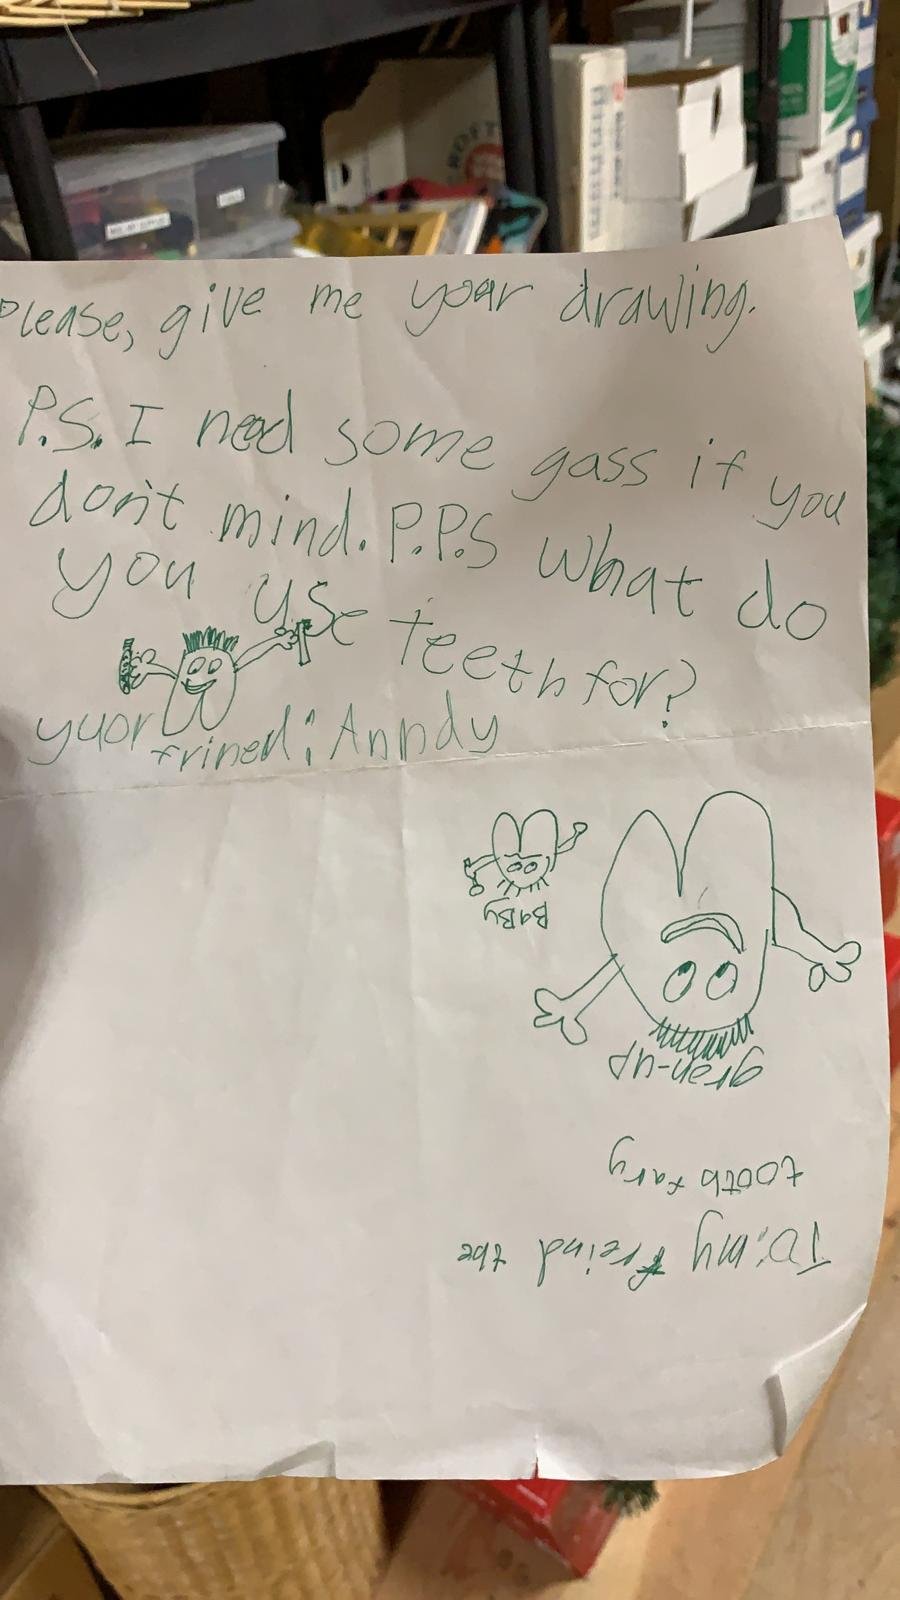 Please, give me your drawing.
P.S. I need some gass if you
don't mind. P.P.S What do
you use teeth for?
yuor frined: Anndy
BaBy
gron-up
To: my freind the
tooth fary